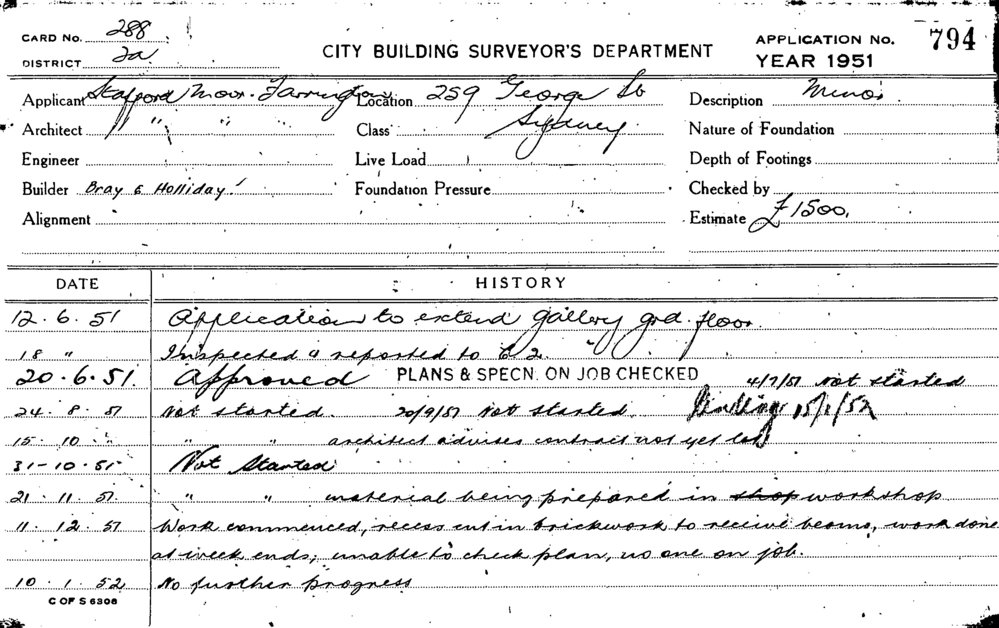 CARD No. 288
DISTRICT 2a
CITY BUILDING SURVEYOR'S DEPARTMENT
APPLICATION No. 794
YEAR 1951
Applicant Stafford Moor Farrington Location 259 George St Description Minor
Architect " " " Class Sydney Nature of Foundation
Engineer Live Load Depth of Footings
Builder Bray & Holliday Foundation Pressure Checked by
Alignment Estimate £1500.
DATE HISTORY
12.6.51 Application to extend gallery grd. floor.
18 " Inspected & reported to C2.
20.6.51. Approved PLANS & SPECN. ON JOB CHECKED 4/7/51 Not started
24.8.51 Not started. 20/9/51 Not started 15/1/52
15.10 " " " architect advises contract not yet let
31-10.51 Not Started
21.11.51. " " material being prepared in shop workshop
11.12.51 Work commenced, recess cut in brickwork to receive beams, work done
at week ends; unable to check plan, no one on job.
10.1.52 No further progress
C OF S 6308